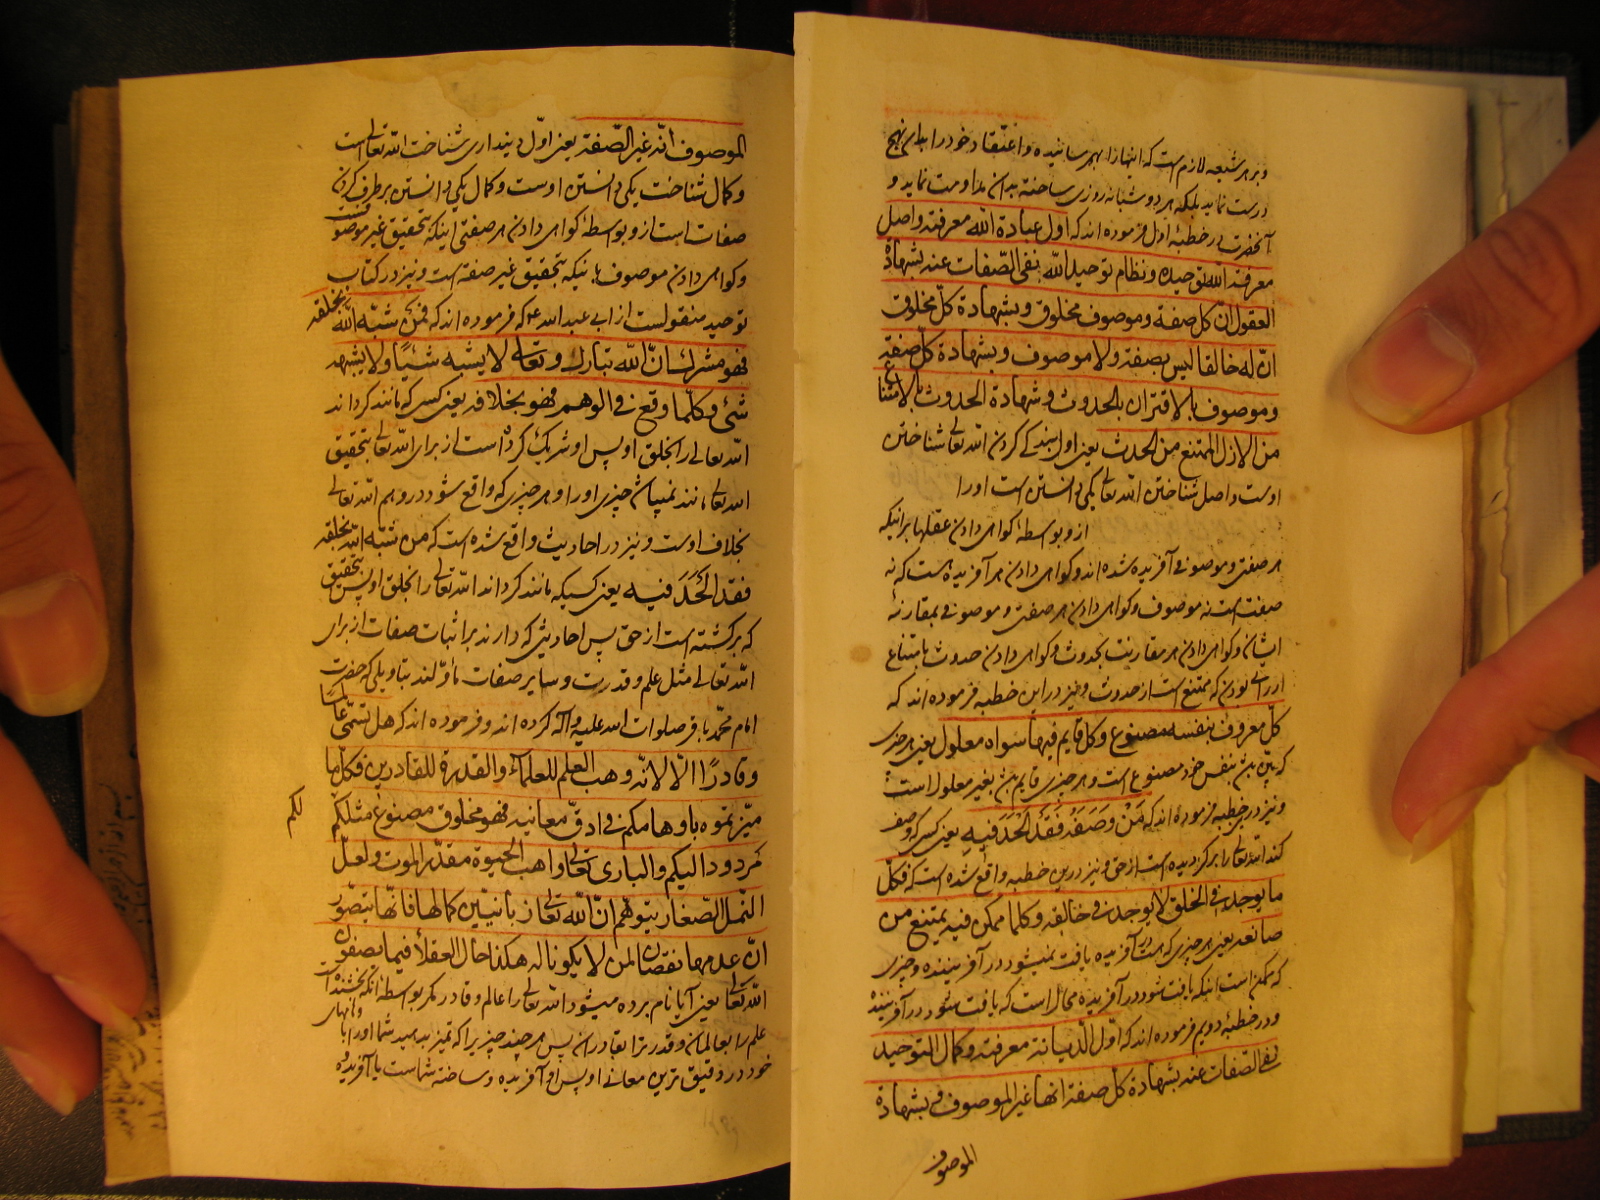 و بر هر شیعه لازم است که اینها را بهم رسانیده و اعتقاد خود را باین نهج
درست نماید بلکه هر دو شبانه روزی ساخته بدان مداومت نماید و
آنحضرت در خطبهٔ اول فرموده اند که اول عبادة الله معرفته و اصل
معرفة الله توحیده و نظام توحید الله نفی الصّفات عنه بشهادة
العقول انّ کل صفة و موصوف مخلوق و بشهادة کلّ مخلوق
انّ له خالقا لیس بصفة ولا موصوف و بشهادة کلّ صفة
و موصوف بالاقتران بالحدوث و شهادة الحدوث بالامتناع
من الازل الممتنع من الحدث یعنی اول بندگی کردن الله تعالی شناختن
اوست و اصل شناختن الله تعالی یکی دانستن است او را
ازو بواسطهٔ گواهی دادن عقلها برانیکه
هر صفتی و موصوفی آفریده شده اند و گواهی دادن هر آفریده است که نه
صفت است نه موصوف و گواهی دادن هر صفتی و موصوفی بمقارنهٔ
ایشان و گواهی دادن هر مقارنت بحدوث و گواهی دادن حدوث بامتناع
ازلی بودن که ممتنع است از حدوث و نیز در این خطبه فرموده اند که
کل معروف بنفسه مصنوع و کل قایم فیما سواه معلول یعنی هر چیزی
بنفس خود مصنوع است و هر چیزی قایم بغیر معلول است
و نیز در خطبه فرموده اند که مَنْ وَصَفَهُ فَقَدْ اَلْحَدَ فیهِ یعنی کسی که وصف
کند الله تعالی را برگردیده است از حق و نیز درین خطبه واقع شده است که فکلّ
ما یوجد فی الخلق لا یوجد فی خالقه و کلما ممکن فیه یمتنع من
صانعه یعنی هر چیزی که هست در آفریده یافت نمیشود در آفریننده و چیزی
که ممکن است اینکه یافت شود در آفریده محال است که یافت شود در آفریننده
و در خطبهٔ دویم فرموده اند که اوّل الدّیانة معرفته و کمال التوحید
نفی الصفات عنه بشهادة کلّ صفة انها غیر الموصوف و بشهادة
الموصوف
الموصوف انّه غیر الصّفة یعنی اوّل دینداری شناخت الله تعالی است
و کمال شناخت یکی دانستن اوست و کمال یکی دانستن برطرف کردن
صفات است ازو بواسطهٔ گواهی دادن هر صفتی اینکه بتحقیق غیر موصوفست
و گواهی دادن موصوف باینکه بتحقیق غیر صفة است و نیز در کتاب
توحید منقولست از ابی عبدالله ع که فرموده اند که فمن شبّه الله بخلقه
فهو مشرک انّ الله تبارک و تعالی لا یشبه شیئًا ولا یشبهه
شئ و کلّما وقع فی الوهم فهو بخلافه یعنی کسی که مانند گرداند
الله تعالی را بخلق او پس او شریک کرده است از برای الله تعالی بتحقیق
الله تعالی مانند نمیباشد چیزی او را و هر چیزی که واقع شود در وهم الله تعالی
بخلاف اوست و نیز در احادیث واقع شده است که من شبّه الله بخلقه
فقد اَلْحَدَ فیه یعنی کسیکه مانند گرداند الله تعالی را بخلق او پس بتحقیق
که برگشته است از حق پس احادیثی که دارند بر اثبات صفات از برای
الله تعالی مثل علم و قدرت و سایر صفات مأوّلند بتاویلی که حضرت
امام محمّد باقر صلوات الله علیه و آله کرده اند و فرموده اند که هل تسمّی عالمًا
و قادرًا الّا لانّه وهب العلم للعلماء و القدرة للقادرین فکلّ ما
میّزتموه باوهامکم فی ادقّ معانیه فهو مخلوق مصنوع مثلکم
لکم
مردود الیکم و الباری تعالی واهب الحیوة مقدّر الموت و لعلّ
النمل الصّغار یتوهّم انّ الله تعالی زبانیتین کمالها فانّها یتصّور
انّ عدمها نقصان لمن لا یکونا له هکذا حال العقلاء فیما یصفون
الله تعالی یعنی آیا نام برده میشود الله تعالی را عالم و قادر مگر بواسطهٔ آنکه بخشنده است
علم را بعالمان و قدرت را بقادران پس هر چند چیزیرا که تمیز بدهید شما او را بوهمهای
خود در دقیق ترین معانی او پس او آفریده و ساخته شماست یا آفریده